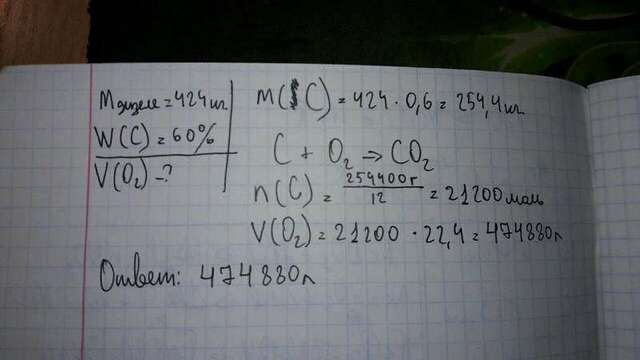 m жизели = 424 кг.
W(C) = 60%
V(O₂) - ?
m(C) = 424 · 0,6 = 254,4 кг.
C + O₂ → CO₂
n(C) = 254400г / 12 = 21200 моль
V(O₂) = 21200 · 22,4 = 474880л
Ответ: 474880л